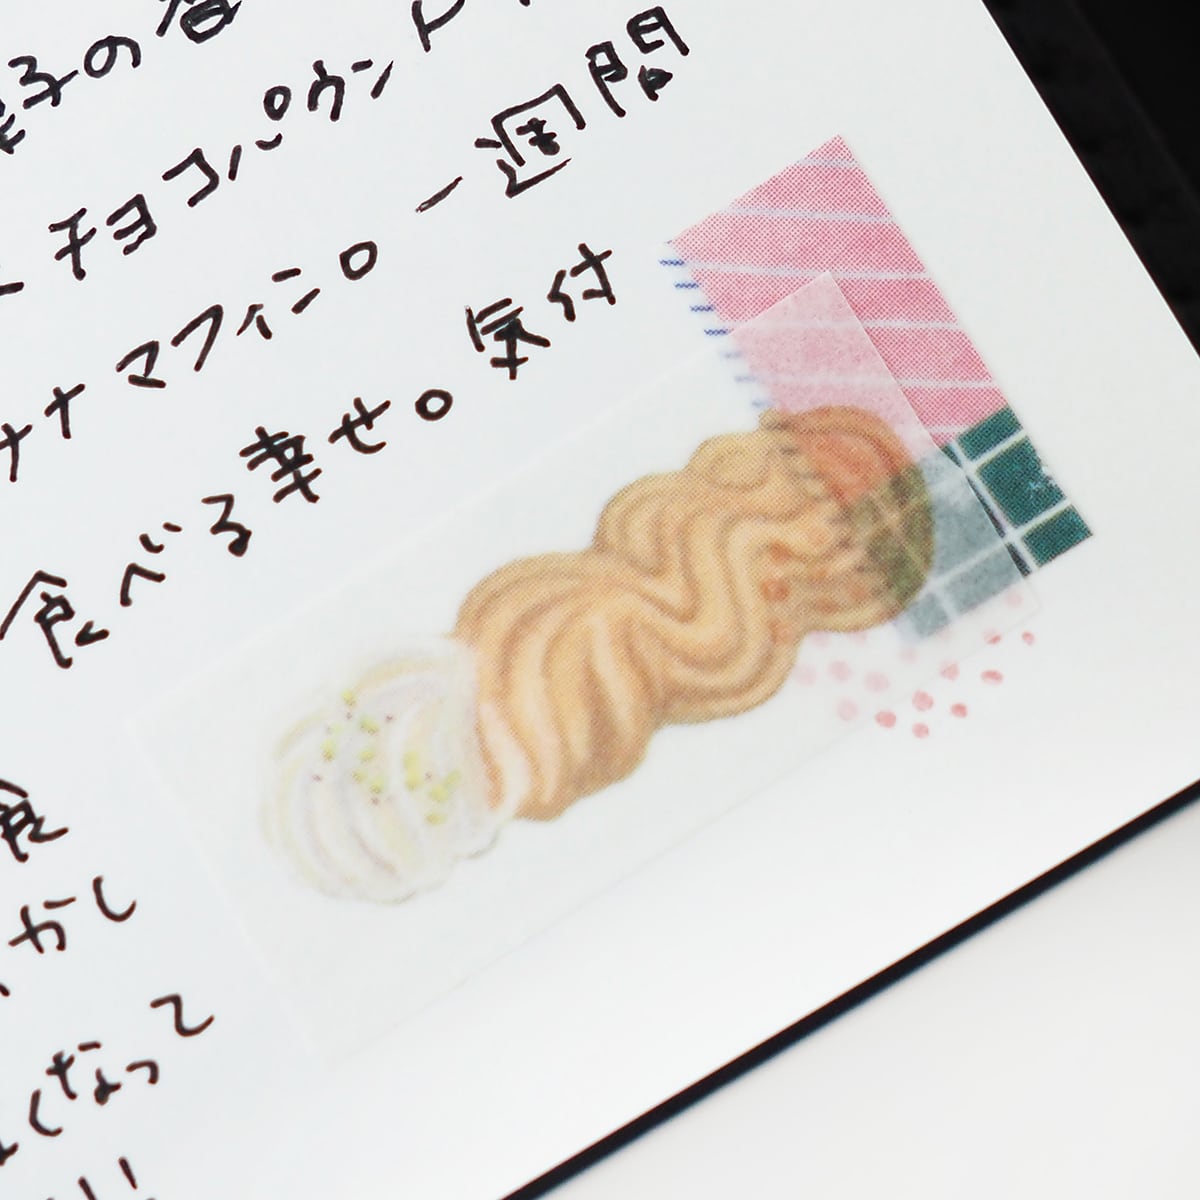 菓子の香
チョコパウンド
ナナマフィン。一週間
食べる幸せ。気付
食
かし
くなって
!!